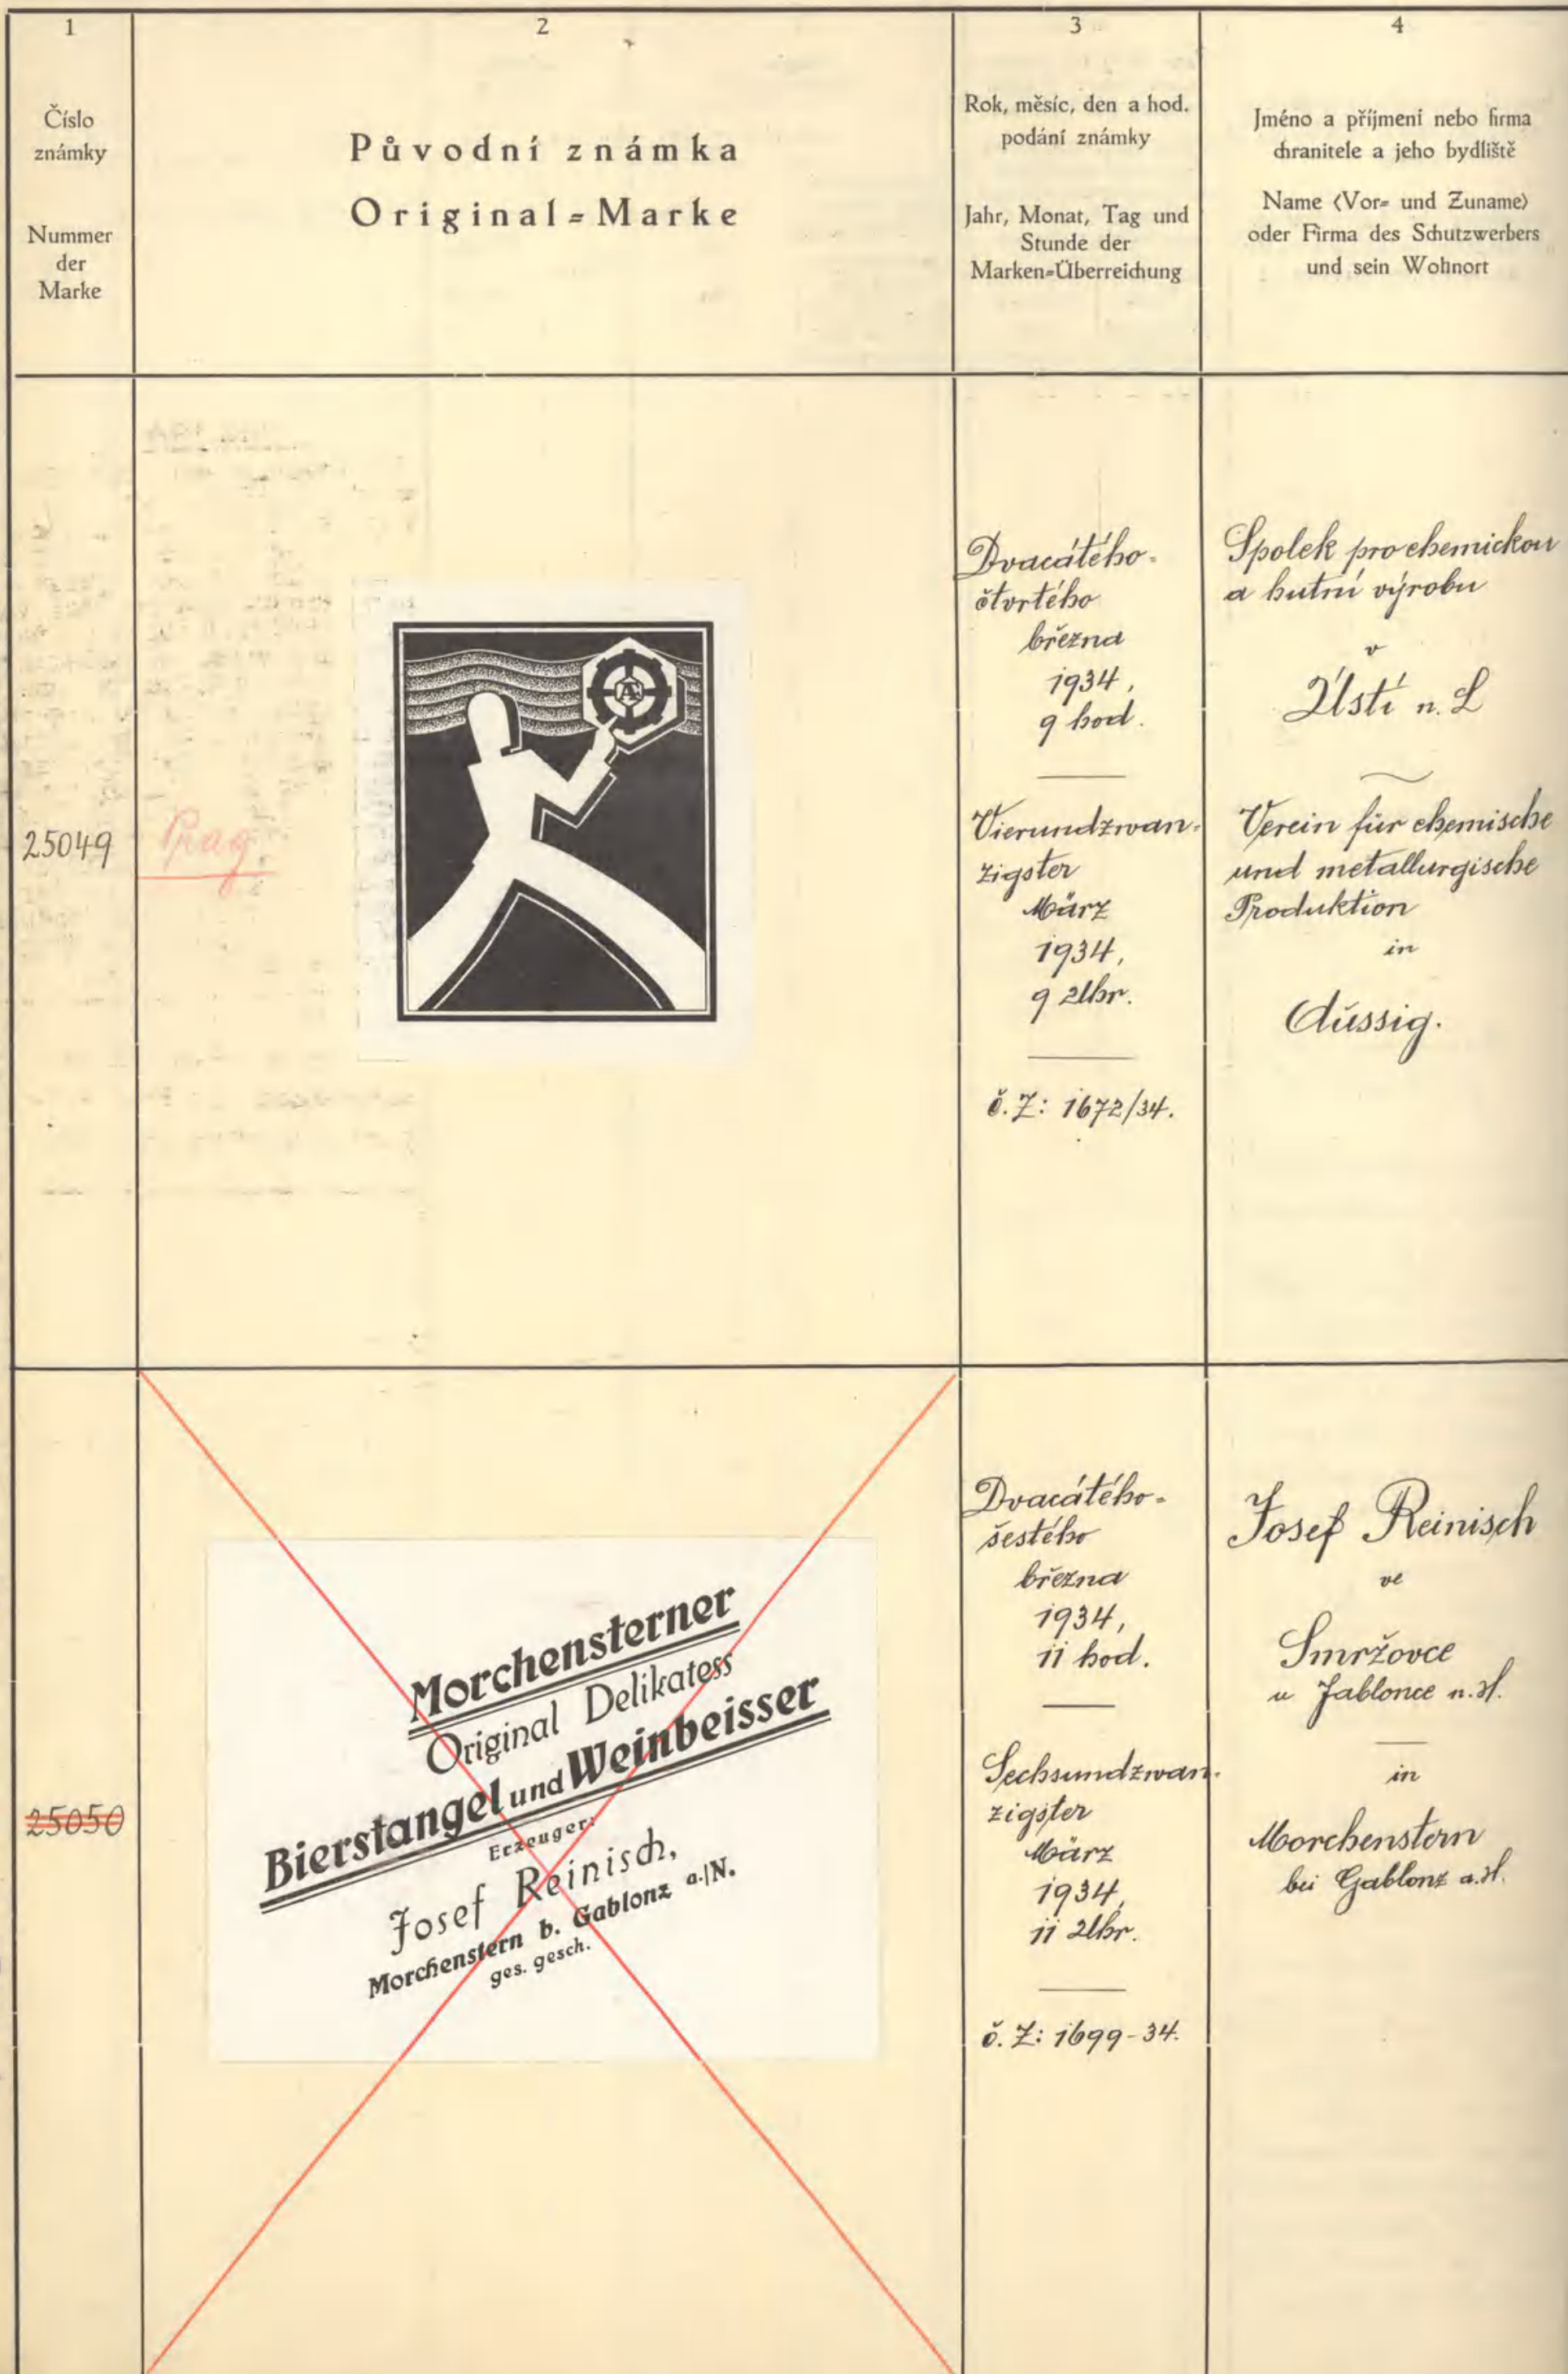 1
2
3
4
Číslo
známky
Nummer
der
Marke
Původní známka
Original=Marke
Rok, měsíc, den a hod.
podání známky
Jahr, Monat, Tag und
Stunde der
Marken=Überreichung
Jméno a příjmení nebo firma
chranitele a jeho bydliště
Name (Vor= und Zuname)
oder Firma des Schutzwerbers
und sein Wohnort
25049
Prag.
A
Dvacátého-
čtvrtého
března
1934,
9 hod.
Vierundzwan-
zigster
März
1934,
9 Uhr.
č.Z: 1672/34.
Spolek pro chemickou
a hutní výrobu
v
Ústí n. L
Verein für chemische
und metallurgische
Produktion
in
Aussig.
25050
Morchensterner
Original Delikatess
Bierstangel und Weinbeisser
Erzeuger:
Josef Reinisch,
Morchenstern b. Gablonz a./N.
ges. gesch.
Dvacátého-
šestého
března
1934,
11 hod.
Sechsundzwan-
zigster
März
1934,
11 Uhr.
č.Z: 1699-34.
Josef Reinisch
ve
Smržovce
u Jablonce n.N.
in
Morchenstern
bei Gablonz a.N.